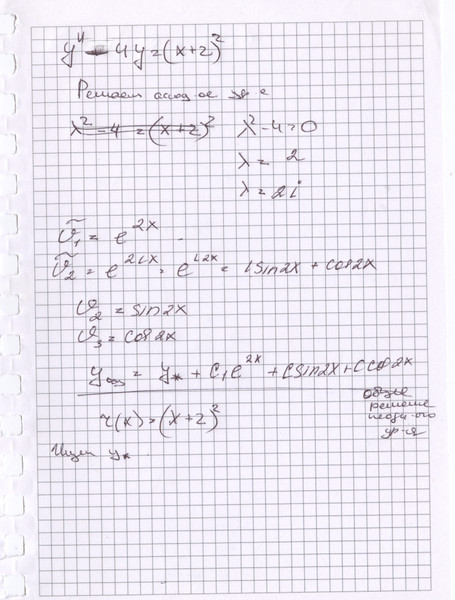 y'' - 4y = (x+2)²
Решаем ур-е
λ² - 4 = (x+2)² λ² - 4 = 0
λ = 2
λ = 2i
ṽ₁ = e^{2x}
ṽ₂ = e^{2ix} = e^{i2x} = isin2x + cos2x
v₂ = sin2x
v₃ = cos2x
y = y* + C₁e^{2x} + Csin2x + Ccos2x
общее
решение
ур-я
r(x) = (x+2)²
Ищем y*